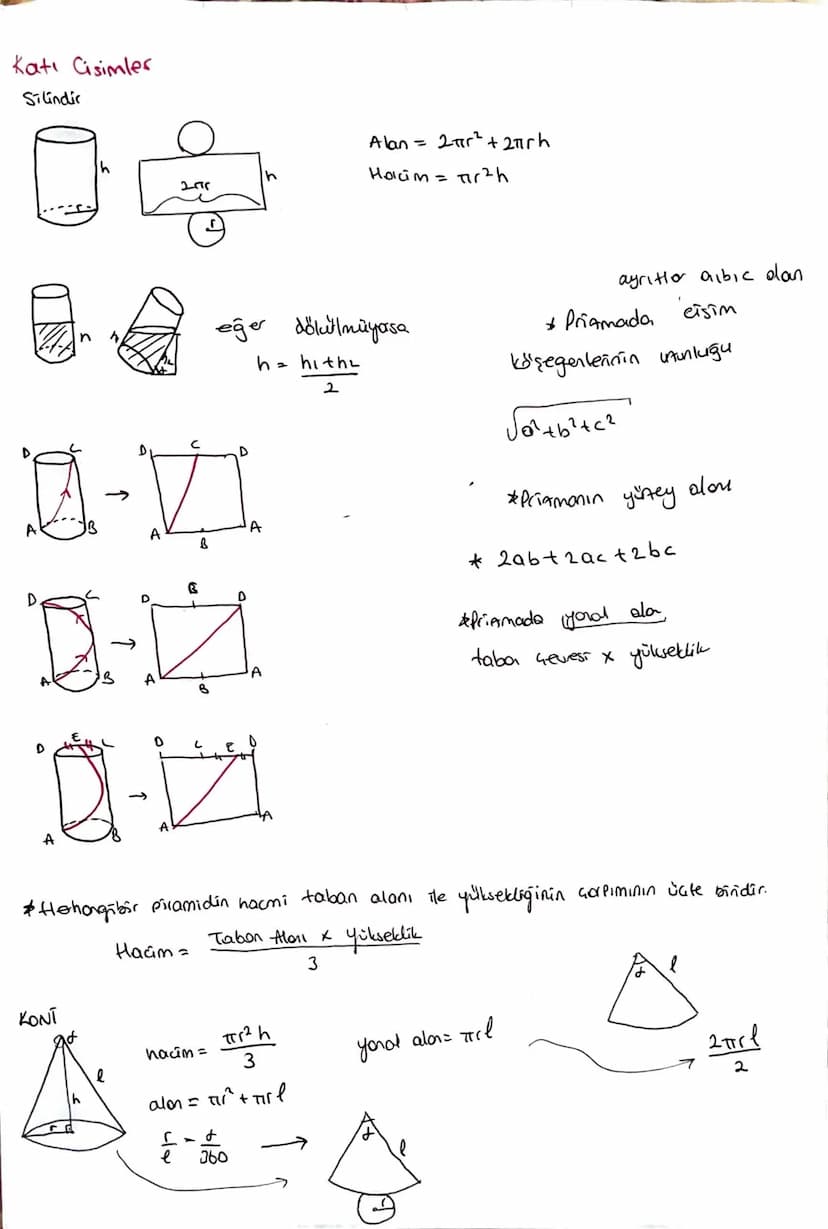 Katı Cisimler
Silindir
h
r
2πr
h
r
Alan = 2πr² + 2πrh
Hacim = πr²h
h
h₁
h₂
eğer dökülmüyosa
h = h₁+h₂
2
ayrıtlar a,b,c olan
* Prizmada cisim
köşegenlerinin uzunluğu
√a²+b²+c²
*Prizmanın yüzey alanı
* 2ab+2ac+2bc
*Prizmada yanal alan
taban çevresi x yükseklik
D C
A B
→
D C D
A B A
D C
A B
→
D C D
A B A
D E C
A B
→
D C E D
A A
* Herhangi bir piramidin hacmi taban alanı ile yüksekliğinin çarpımının üçte biridir.
Hacim = Taban Alanı x Yükseklik
3
KONİ
α
l
h
r
hacim = πr²h
3
alan = πr² + πrl
r/l = α/360
yanal alan = πrl
α
l
2πrl
2
α
l
r